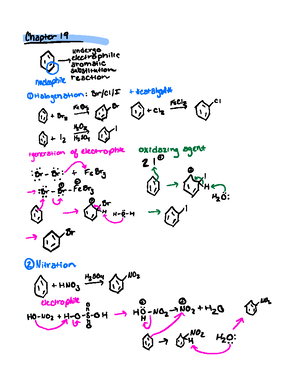 Chapter 19
undergo
electrophilic
aromatic
substitution
reaction
nucleophile
① Halogenation: Br/Cl/I + catalyst
+ Br₂ FeBr₃ Br + Cl₂ FeCl₃ Cl
+ I₂ H₂O₂ H₂SO₄ I
generation of electrophile oxidazing agent
Br Br + FeBr₃ 2 I
Br Br FeBr₃ I H H₂O:
Br H I
Br
② Nitration
+ HNO₃ H₂SO₄ NO₂
electrophile
HO-NO₂ + H-O-S-O H HO-NO₂ NO₂ + H₂O NO₂
H
NO₂ H H₂O: